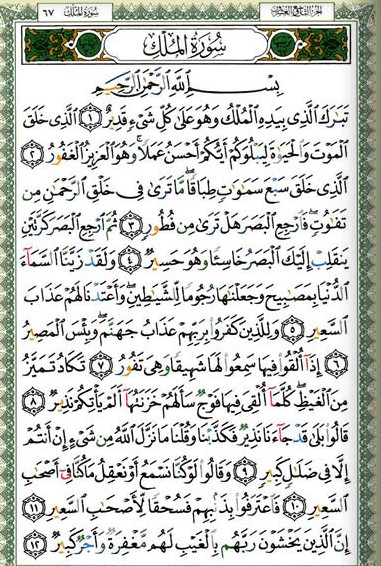 الجزء التاسع والعشرون ٦٧ سورة الملك
سُورَةُ المُلْكِ
بِسْمِ اللَّهِ الرَّحْمَٰنِ الرَّحِيمِ
تَبَارَكَ الَّذِي بِيَدِهِ الْمُلْكُ وَهُوَ عَلَىٰ كُلِّ شَيْءٍ قَدِيرٌ ١ الَّذِي خَلَقَ
الْمَوْتَ وَالْحَيَوٰةَ لِيَبْلُوَكُمْ أَيُّكُمْ أَحْسَنُ عَمَلًا ۚ وَهُوَ الْعَزِيزُ الْغَفُورُ ٢
الَّذِي خَلَقَ سَبْعَ سَمَٰوَٰتٍ طِبَاقًا ۖ مَّا تَرَىٰ فِي خَلْقِ الرَّحْمَٰنِ مِن
تَفَٰوُتٍ ۖ فَارْجِعِ الْبَصَرَ هَلْ تَرَىٰ مِن فُطُورٍ ٣ ثُمَّ ارْجِعِ الْبَصَرَ كَرَّتَيْنِ
يَنقَلِبْ إِلَيْكَ الْبَصَرُ خَاسِئًا وَهُوَ حَسِيرٌ ٤ وَلَقَدْ زَيَّنَّا السَّمَاءَ
الدُّنْيَا بِمَصَٰبِيحَ وَجَعَلْنَٰهَا رُجُومًا لِّلشَّيَٰطِينِ ۖ وَأَعْتَدْنَا لَهُمْ عَذَابَ
السَّعِيرِ ٥ وَلِلَّذِينَ كَفَرُوا بِرَبِّهِمْ عَذَابُ جَهَنَّمَ ۖ وَبِئْسَ الْمَصِيرُ
٦ إِذَا أُلْقُوا فِيهَا سَمِعُوا لَهَا شَهِيقًا وَهِيَ تَفُورُ ٧ تَكَادُ تَمَيَّزُ
مِنَ الْغَيْظِ ۖ كُلَّمَا أُلْقِيَ فِيهَا فَوْجٌ سَأَلَهُمْ خَزَنَتُهَا أَلَمْ يَأْتِكُمْ نَذِيرٌ ٨
قَالُوا بَلَىٰ قَدْ جَاءَنَا نَذِيرٌ فَكَذَّبْنَا وَقُلْنَا مَا نَزَّلَ اللَّهُ مِن شَيْءٍ إِنْ أَنتُمْ
إِلَّا فِي ضَلَٰلٍ كَبِيرٍ ٩ وَقَالُوا لَوْ كُنَّا نَسْمَعُ أَوْ نَعْقِلُ مَا كُنَّا فِي أَصْحَٰبِ
السَّعِيرِ ١٠ فَاعْتَرَفُوا بِذَنبِهِمْ فَسُحْقًا لِّأَصْحَٰبِ السَّعِيرِ ١١
إِنَّ الَّذِينَ يَخْشَوْنَ رَبَّهُم بِالْغَيْبِ لَهُم مَّغْفِرَةٌ وَأَجْرٌ كَبِيرٌ ١٢